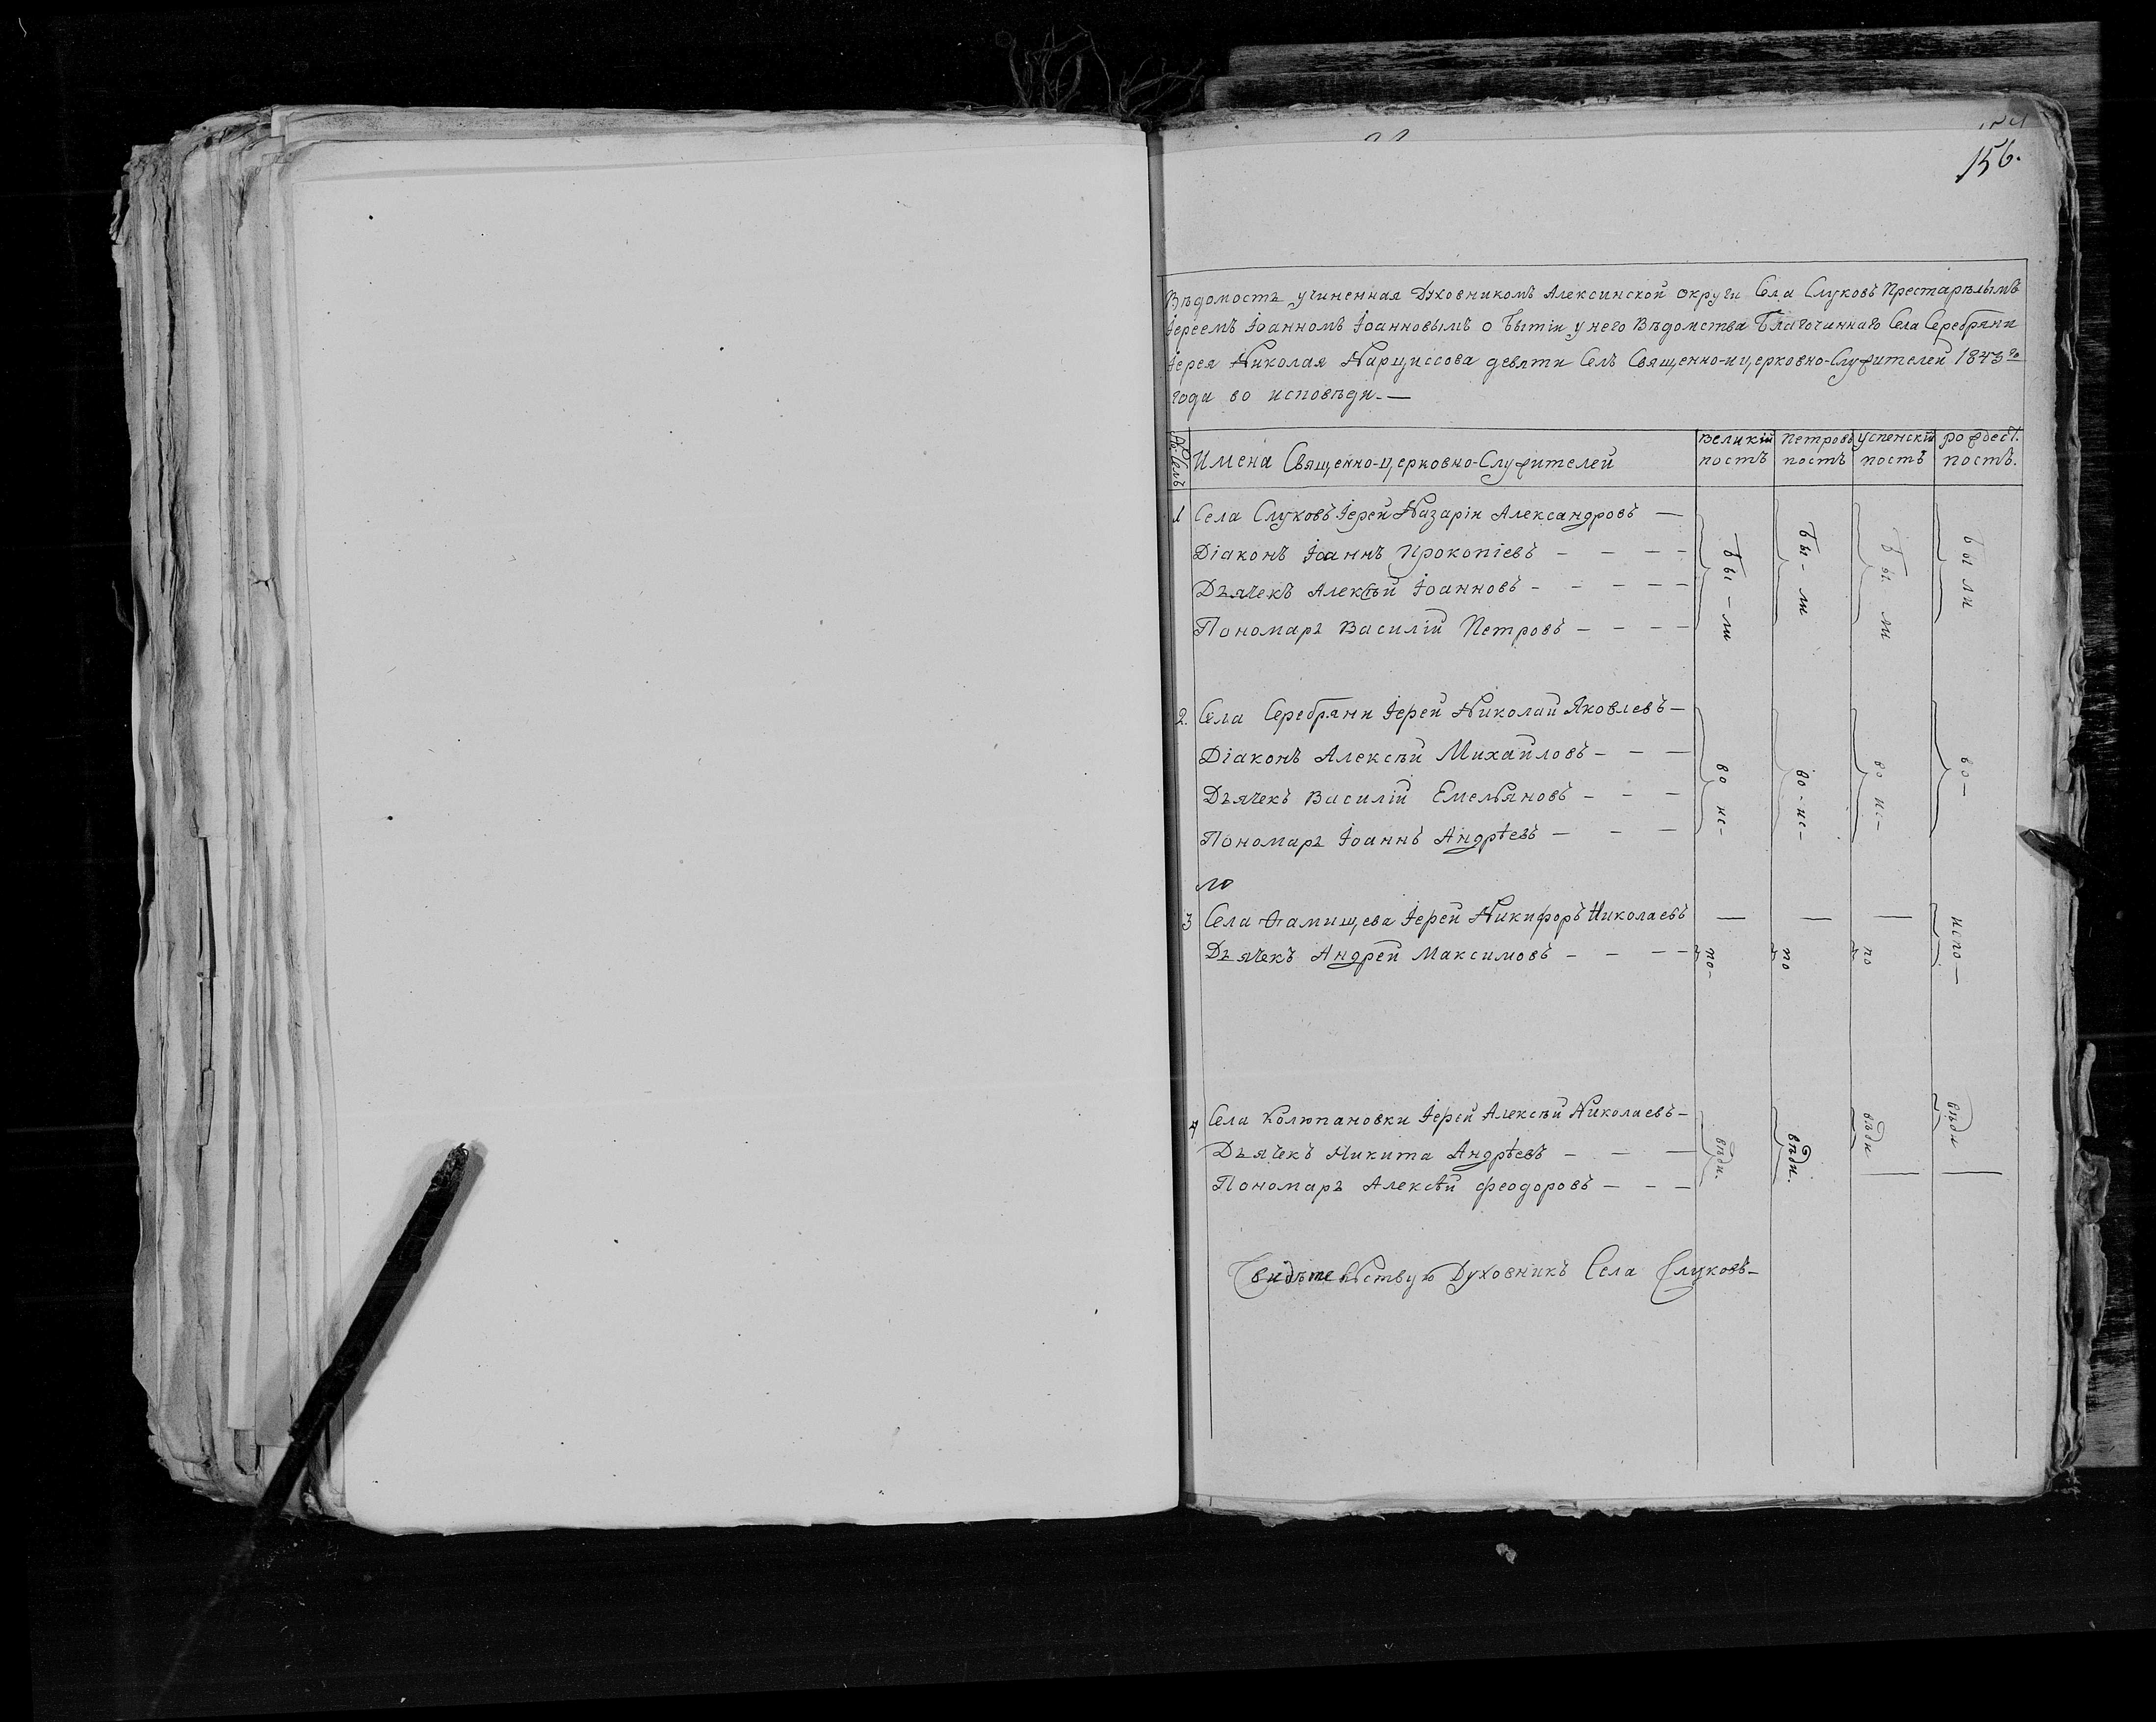 156.
Вѣдомость учиненная Духовникомъ Алексинской округи Села Слуковъ Престарѣлымъ
Іереемъ Іоанномъ Іоанновымъ о бытіи у него Вѣдомства Благочиннаго Села Серебряни
Іерея Николая Нарциссова девяти Селъ Священно-и церковно-Служителей 1843го
года во исповѣди.—
Имена Священно-церковно-Служителей
великій постъ
петровъ постъ
успенскій постъ
рождест. постъ.
1 Села Слуковъ Іерей Назарій Александровъ —
Діаконъ Іоаннъ Прокопіевъ — — — —
Дьячекъ Алексѣй Іоанновъ — — — — —
Пономарь Василій Петровъ — — — —
бы-ли
бы-ли
бы. ли
были
2. Села Серебряни Іерей Николай Яковлевъ —
Діаконъ Алексѣй Михайловъ — — —
Дьячекъ Василій Емельяновъ — — —
Пономарь Іоаннъ Андрѣевъ — — —
во ис-
во-ис-
во ис-
во-
3 Села Іерей Никифоръ Николаевъ — — —
Дьячекъ Андрей Максимовъ — — — —
по-
по
по
испо-
4 Села Колюпановки Іерей Алексѣй Николаевъ —
Дьячекъ Никита Андрѣевъ — — —
Пономарь Алексѣй Феодоровъ — — —
вѣди.
вѣди.
вѣди
вѣди
Свидѣтельствую Духовникъ Села Слуковъ —